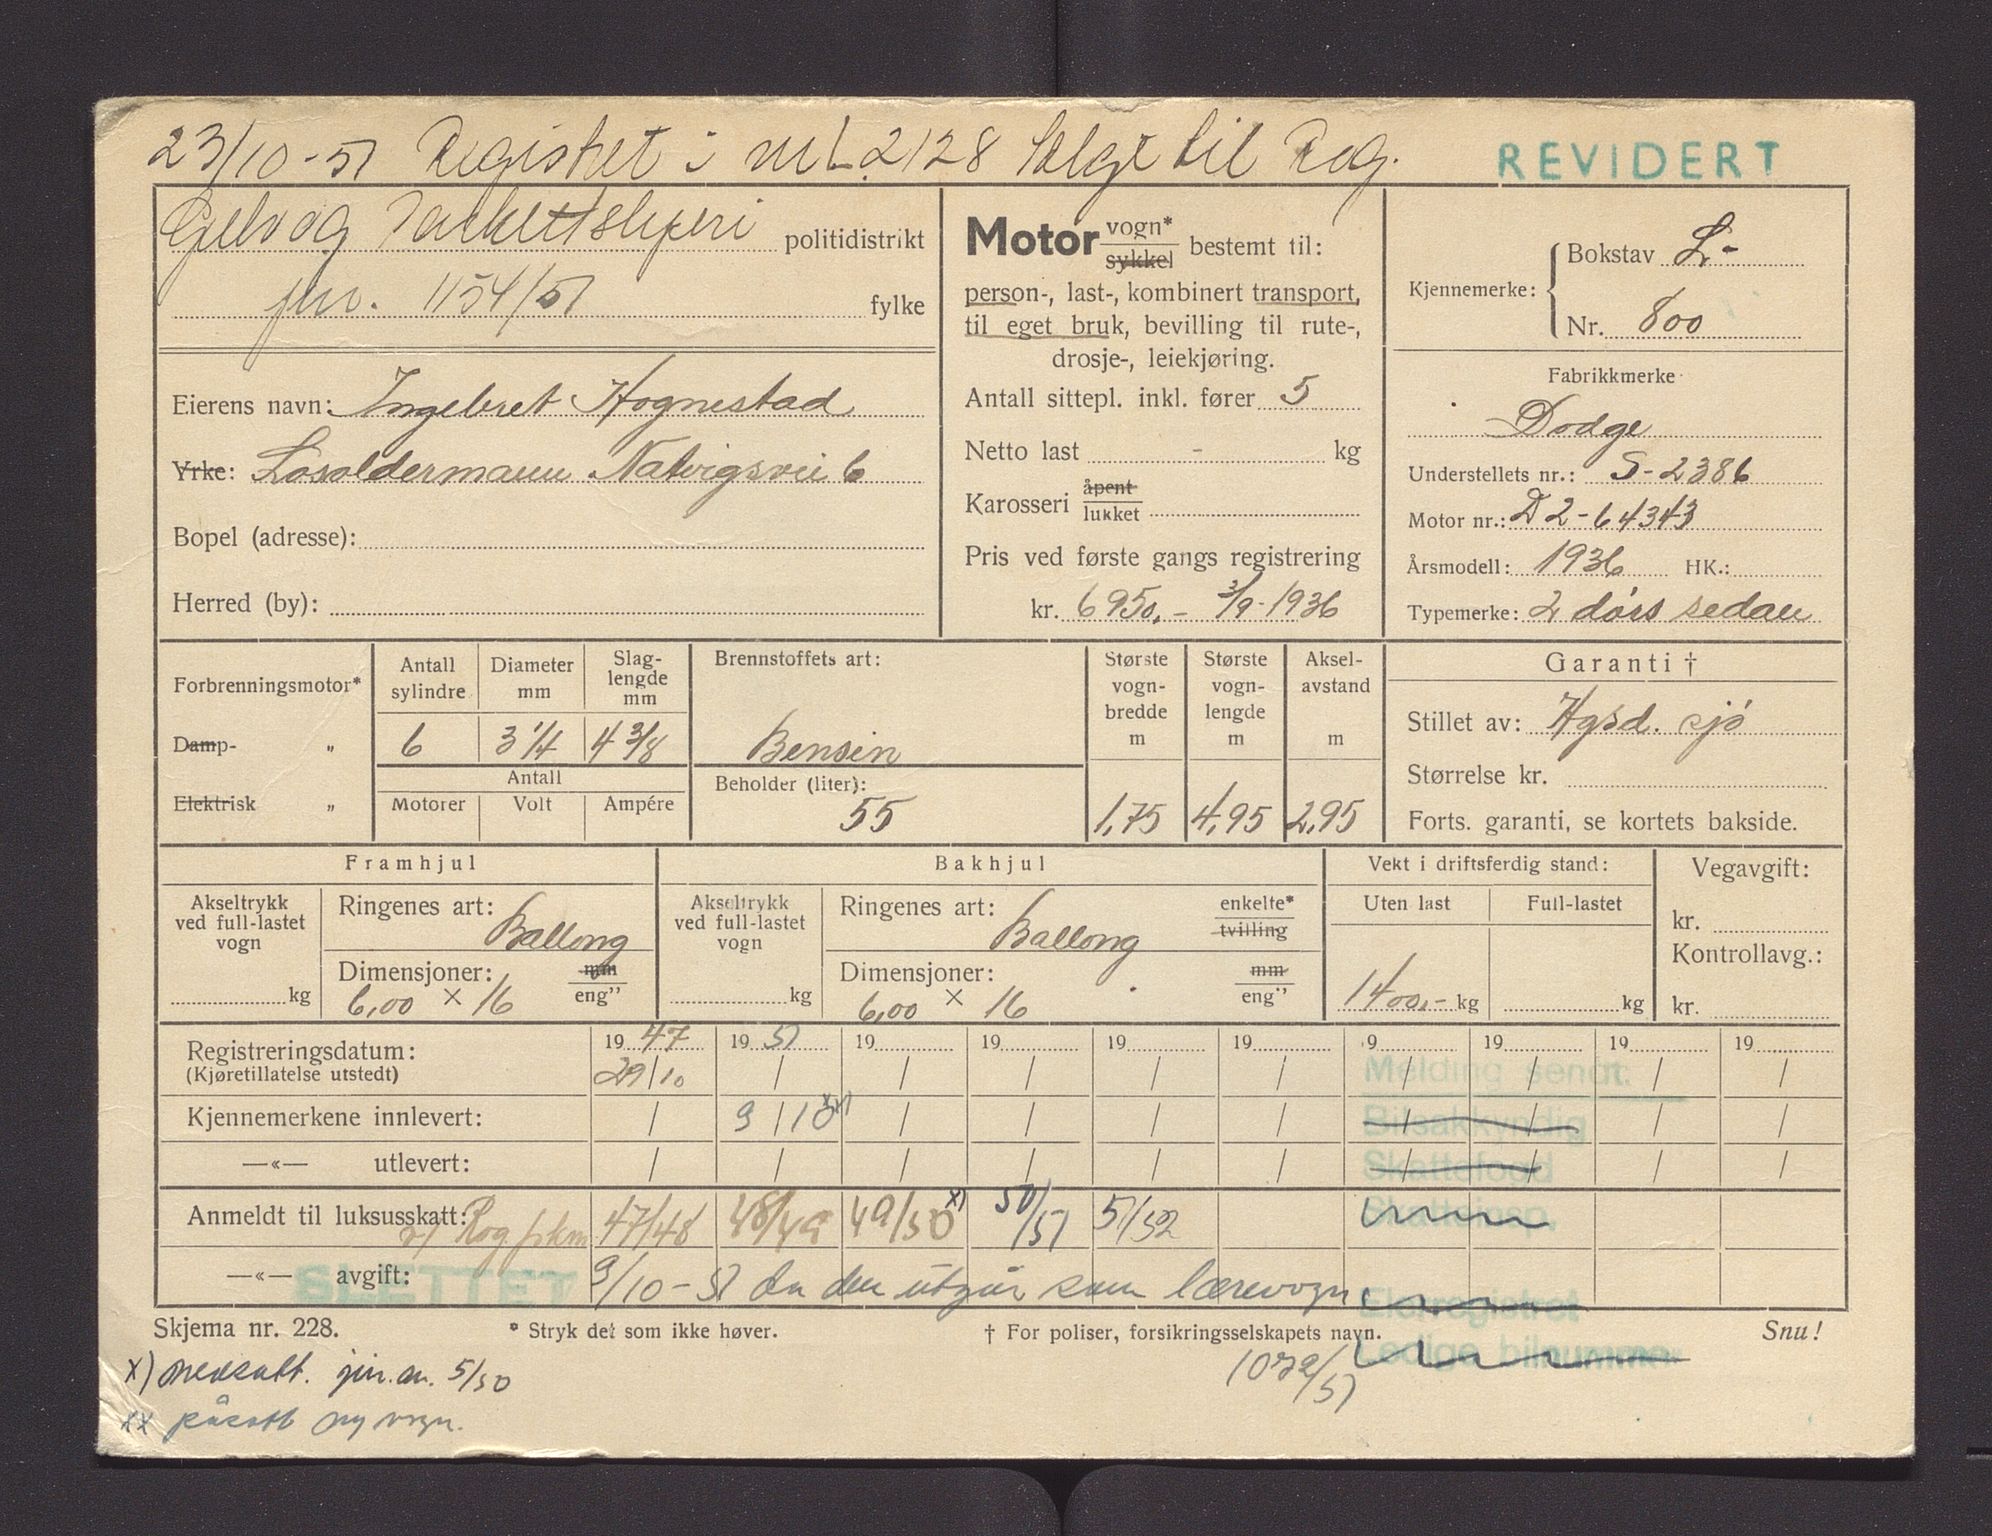 23/10-51 Registret i nr L.2128 Solgt til Rog.
REVIDERT
politidistrikt
jnr. 1154/51 fylke
Eierens navn: Ingebret Hognestad
Yrke: Losoldermann Natvigsvei 6
Bopel (adresse):
Herred (by):
Motor vogn*
sykkel bestemt til:
person-, last-, kombinert transport,
til eget bruk, bevilling til rute-,
drosje-, leiekjøring.
Antall sittepl. inkl. fører 5
Netto last - kg
Karosseri åpent
lukket
Pris ved første gangs registrering
kr. 6950,- 3/9-1936
Kjennemerke: Bokstav L-
Nr. 800
Fabrikkmerke
Dodge
Understellets nr.: S-2386
Motor nr.: D2-64343
Årsmodell: 1936 HK.:
Typemerke: 2 dørs sedan
Forbrenningsmotor*
Damp- "
Elektrisk "
Antall sylindre
6
Diameter mm
3 1/4
Slaglengde mm
4 3/8
Antall
Motorer Volt Ampére
Brennstoffets art:
Bensin
Beholder (liter):
55
Største vognbredde m
1,75
Største vognlengde m
4,95
Akselavstand m
2,95
Garanti †
Stillet av: Hgsd. sjø
Størrelse kr.
Forts. garanti, se kortets bakside.
Framhjul
Akseltrykk ved full-lastet vogn
kg
Ringenes art: Ballong
Dimensjoner: mm
6,00 × 16 eng"
Bakhjul
Akseltrykk ved full-lastet vogn
kg
Ringenes art: Ballong enkelte*
tvilling
Dimensjoner: mm
6,00 × 16 eng"
Vekt i driftsferdig stand:
Uten last Full-lastet
1400,- kg kg
Vegavgift:
kr.
Kontrollavg.:
kr.
19 47 19 51 19 19 19 19 19 19 19 19
Registreringsdatum: 29/10 / / / / / / / / /
(Kjøretillatelse utstedt)
Melding sendt:
Kjennemerkene innlevert: / 9/10 xx) / / / / / / / /
Bilsakkyndig
—«— utlevert: / / / / / / / / / /
Skattefogd
Anmeldt til luksusskatt: 47/48 48/49 49/50 x) 50/51 51/52
Skatteinsp.
—«— avgift: 9/10-51 da den utgår som lærevogn
SLETTET
Eierregistret
Skjema nr. 228. * Stryk det som ikke høver. † For poliser, forsikringsselskapets navn. Snu!
Ledige bilnummer
x) nedsatt. jnr. 5/50
1072/51
xx påsatt ny vogn.